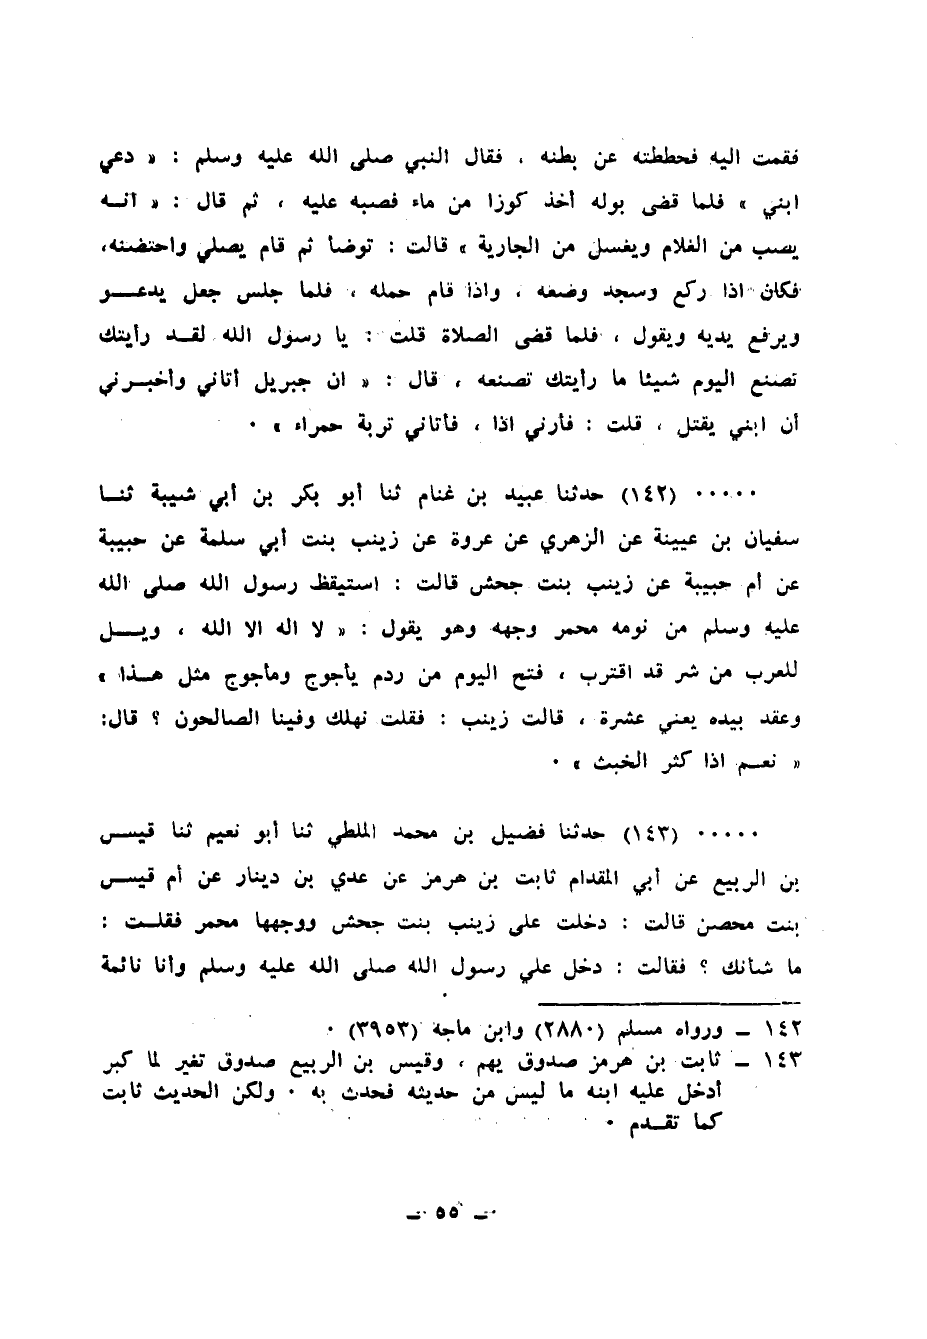 فقمت اليه فحططته عن بطنه ، فقال النبي صلى الله عليه وسلم : « دعي
ابني » فلما قضى بوله أخذ كوزا من ماء فصبه عليه ، ثم قال : « انـه
يصب من الغلام ويغسل من الجارية » قالت : توضأ ثم قام يصلي واحتضنه،
فكان اذا ركع وسجد وضعه ، واذا قام حمله ، فلما جلس جعل يدعــو
ويرفع يديه ويقول ، فلما قضى الصلاة قلت : يا رسول الله لقـد رأيتك
تصنع اليوم شيئا ما رأيتك تصنعه ، قال : « ان جبريل أتاني وأخبـرني
أن ابني يقتل ، قلت : فأرني اذا ، فأتاني تربة حمراء » ٠
٠٠٠٠٠ (١٤٢) حدثنا عبيد بن غنام ثنا أبو بكر بن أبي شيبة ثنـا
سفيان بن عيينة عن الزهري عن عروة عن زينب بنت أبي سلمة عن حبيبة
عن أم حبيبة عن زينب بنت جحش قالت : استيقظ رسول الله صلى الله
عليه وسلم من نومه محمر وجهه وهو يقول : « لا اله الا الله ، ويــل
للعرب من شر قد اقترب ، فتح اليوم من ردم يأجوج ومأجوج مثل هـذا »
وعقد بيده يعني عشرة ، قالت زينب : فقلت نهلك وفينا الصالحون ؟ قال:
« نعـم اذا كثر الخبث » ٠
٠٠٠٠٠ (١٤٣) حدثنا فضيل بن محمد الملطي ثنا أبو نعيم ثنا قيـس
بن الربيع عن أبي المقدام ثابت بن هرمز عن عدي بن دينار عن أم قيـس
بنت محصن قالت : دخلت على زينب بنت جحش ووجهها محمر فقلـت :
ما شأنك ؟ فقالت : دخل علي رسول الله صلى الله عليه وسلم وأنا نائمة
١٤٢ ــ ورواه مسلم (٢٨٨٠) وابن ماجة (٣٩٥٣) ٠
١٤٣ ــ ثابت بن هرمز صدوق يهم ، وقيس بن الربيع صدوق تغير لما كبر
أدخل عليه ابنه ما ليس من حديثه فحدث به ٠ ولكن الحديث ثابت
كما تقـدم ٠
ــ ٥٥ ــ